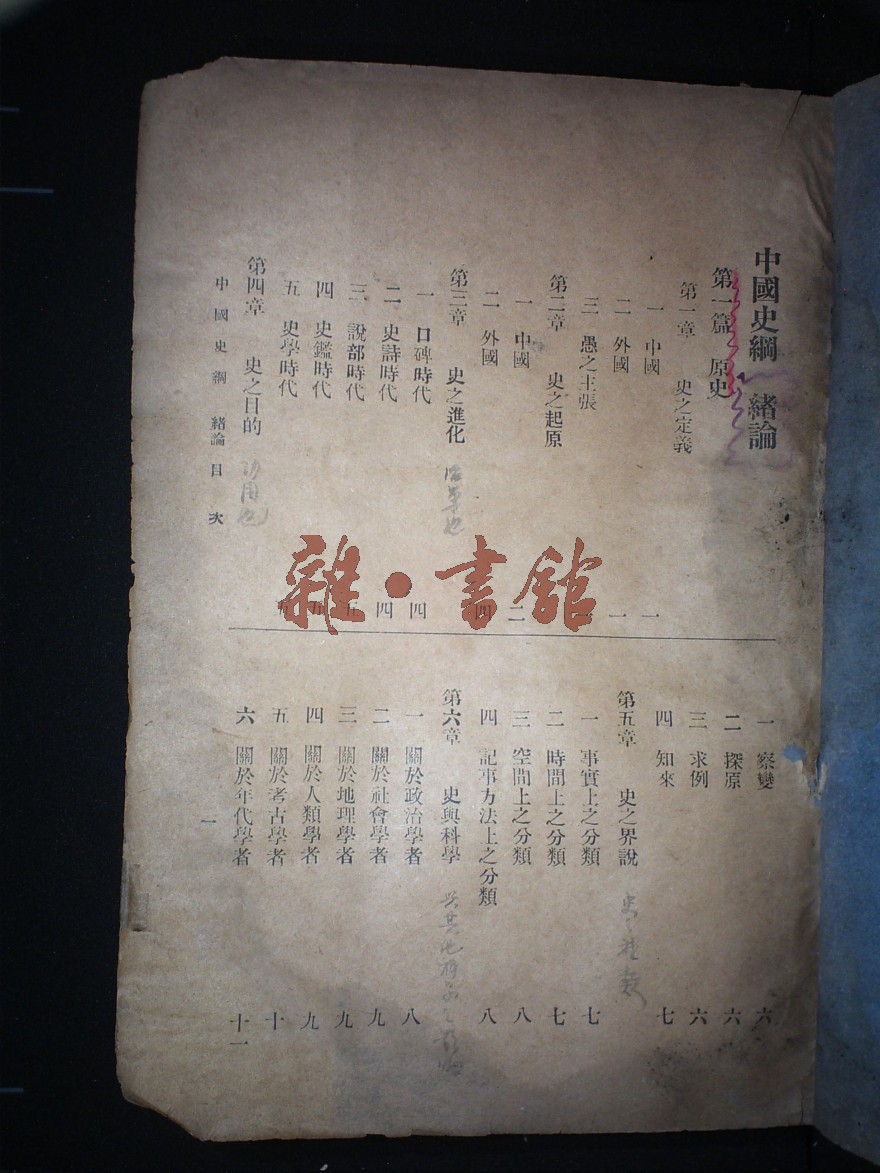 中國史綱 緒論
第一篇 原史
第一章 史之定義
一 中國 一
二 外國 一
三 愚之主張 一
第二章 史之起原
一 中國 二
二 外國 四
第三章 史之進化
一 口碑時代 四
二 史詩時代 四
三 說部時代 五
四 史鑑時代 五
五 史學時代 五
第四章 史之目的 功用也
中國史綱 緒論目次
一 察變 六
二 探原 六
三 求例 六
四 知來 七
第五章 史之界說
一 事實上之分類 七
二 時間上之分類 七
三 空間上之分類 八
四 記事方法上之分類 八
第六章 史與科學
一 關於政治學者 八
二 關於社會學者 九
三 關於地理學者 九
四 關於人類學者 九
五 關於考古學者 十
六 關於年代學者 十一
一
雜·書館